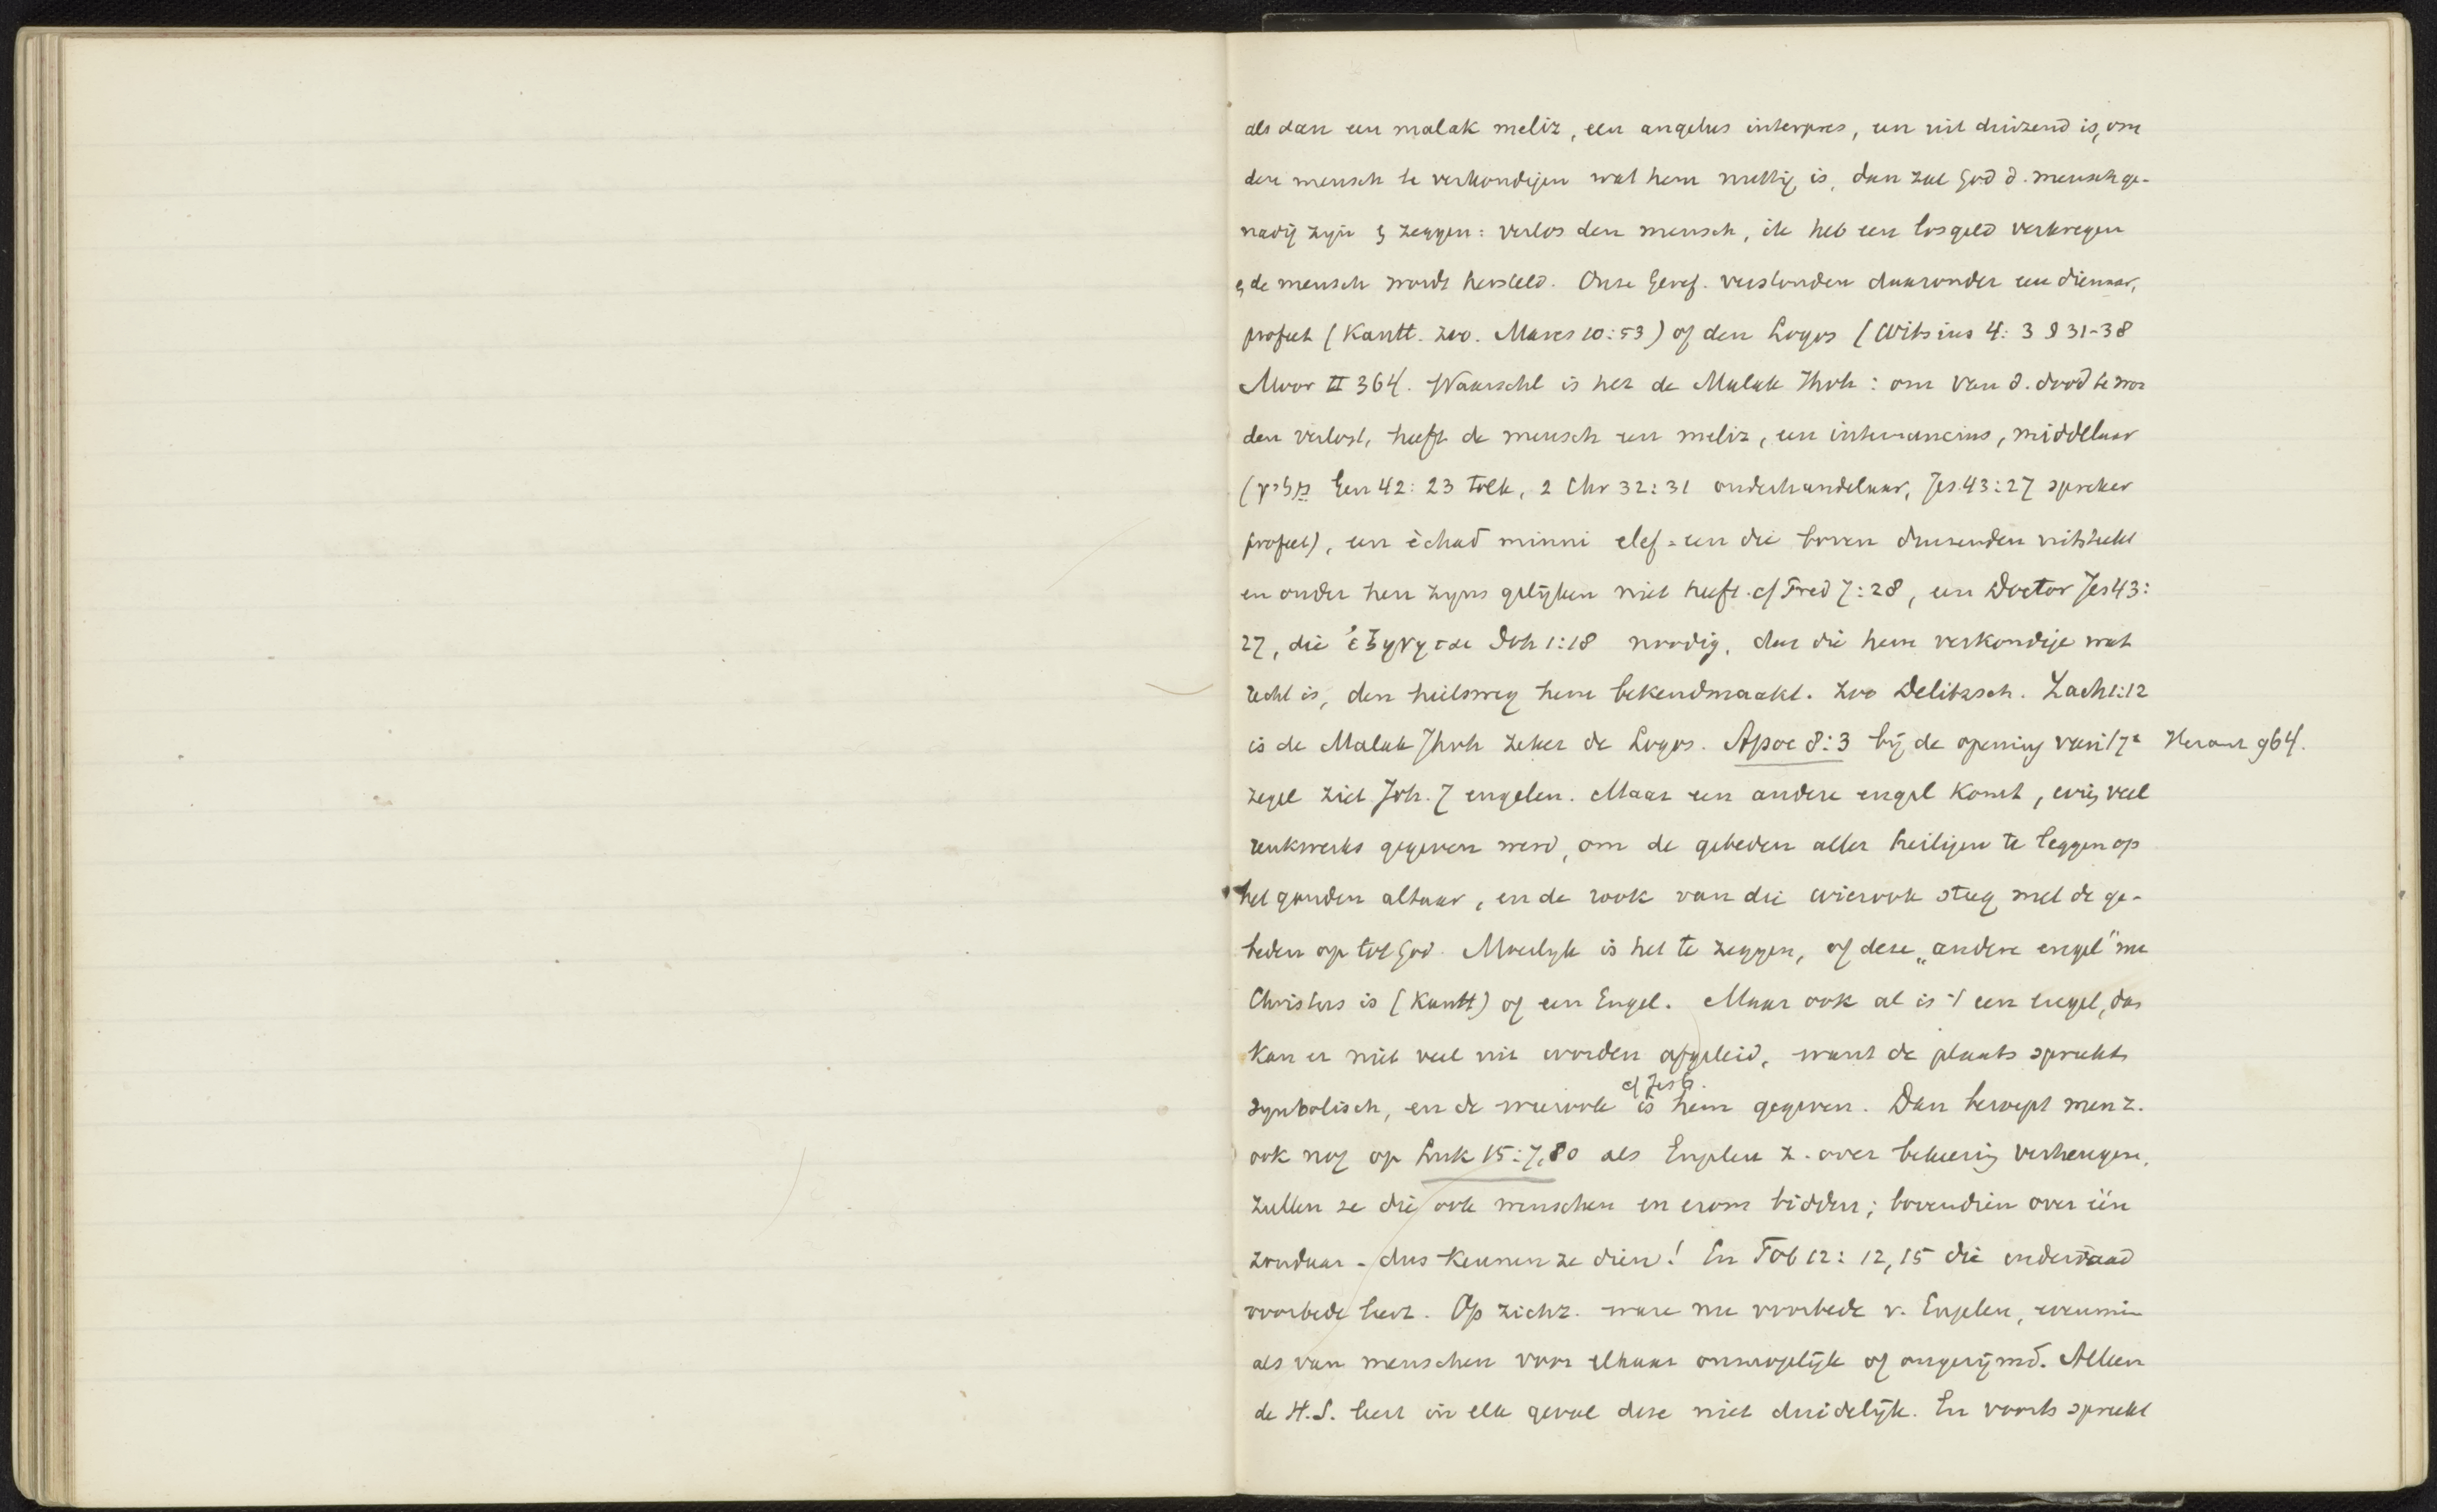 als dan een malak meliz, een angelus interpres, een uit duizend is, om
den mensch te verkondigen wat hem nuttig is, dan zal God d. mensch ge-
nadig zijn & zeggen: verlos den mensch, ik heb een losgeld verkregen
& de mensch wordt hersteld. Onze Geref. verstonden daaronder een dienaar,
profeet (Kantt. zoo. Mares 10:53) of den Logos (Witsius 4:3 § 31-38
Moor II 364. Waarschl is het de Malak Jhvh: om van d. dood te wor
den verlost, heeft de mensch een meliz, een internuncius, middelaar
(מליץ Gen 42:23 tolk, 2 Chr 32:31 onderhandelaar, Jes. 43:27 spreker
profeet), een èchad minni elef = een die boven duizenden uitsteekt
en onder hen zijns gelijken niet heeft. cf Pred 7:28, een Doctor Jes 43:
27, die ἐξηγηται Joh 1:18 noodig, dat die hem verkondige wat
recht is, den heilsweg hem bekendmaakt. Zoo Delitzsch. Zach 1:12
is de Malak Jhvh zeker de Logos. Apoc 8:3 bij de opening van 't 7e
Heraut 964.
zegel ziet Joh. 7 engelen. Maar een andere engel komt, wien veel
reukwerks gegeven werd, om de gebeden aller heiligen te leggen op
het gouden altaar, en de rook van die wierook steeg met de ge-
beden op tot God. Moeilijk is het te zeggen, of deze „andere engel" nu
Christus is (Kantt) of een Engel. Maar ook al is 't een engel, dan
kan er niet veel uit worden afgeleid, want de plaats spreekt
cf Jes 6.
symbolisch, en de wierook is hem gegeven. Dan beroept men z.
ook nog op Luk 15:7,80 als Engelen z. over bekeering verheugen,
zullen ze die ook wenschen en erom bidden; bovendien over één
zondaar - dus kennen ze dien! En Tob 12:12,15 die inderdaad
voorbede leert. Op zichz. ware nu voorbede v. Engelen, evenmin
als van menschen voor elkaar onmogelijk of ongerijmd. Alleen
de H.S. leert in elk geval deze niet duidelijk. En voorts spreekt